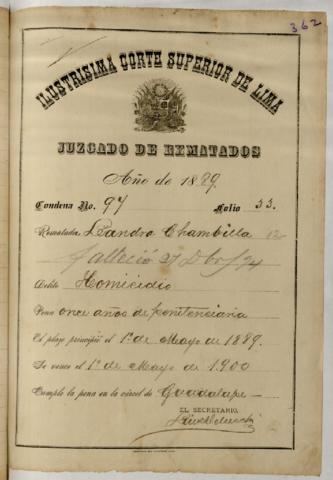 362
ILUSTRISIMA CORTE SUPERIOR DE LIMA
JUZGADO DE REMATADOS
Año de 1889.
Condena No. 97 Folio 33.
Rematado Leandro Chambilla
falleció 27 Dbre/94
Delito Homicidio
Pena once años de penitenciaria
El plazo principió el 1º de Mayo de 1889.
Se vence el 1º de Mayo de 1900
Cumple la pena en la cárcel de Guadalupe—
EL SECRETARIO,